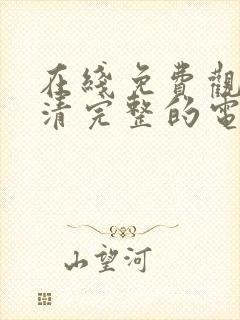 在綫免費觀
清完整的電
山望河